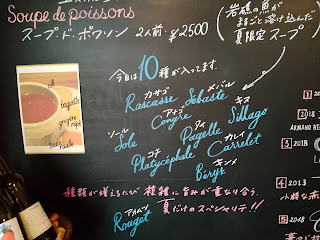 Soupe de poissons
スープ ド ポワソン 2人前・¥2500
岩礁の魚が
まるごと溶け込んだ
夏限定スープ
baguette
gruyère
rape
今日は10種が入ってます。
カサゴ メバル
Rascasse Sébaste
アナゴ キス
Congre Sillago
ソール タイ
Sole Pagelle
コチ カレイ
Platycéphale Carrelet
キンメ
Béryx
種類が増えるたび 種類に旨みが重なり合う、
アカムツ 夏だけのスペシャリテ!!
Rouget
1
2018
ARMAND HE
2
3 2018
4 2013
5 2018